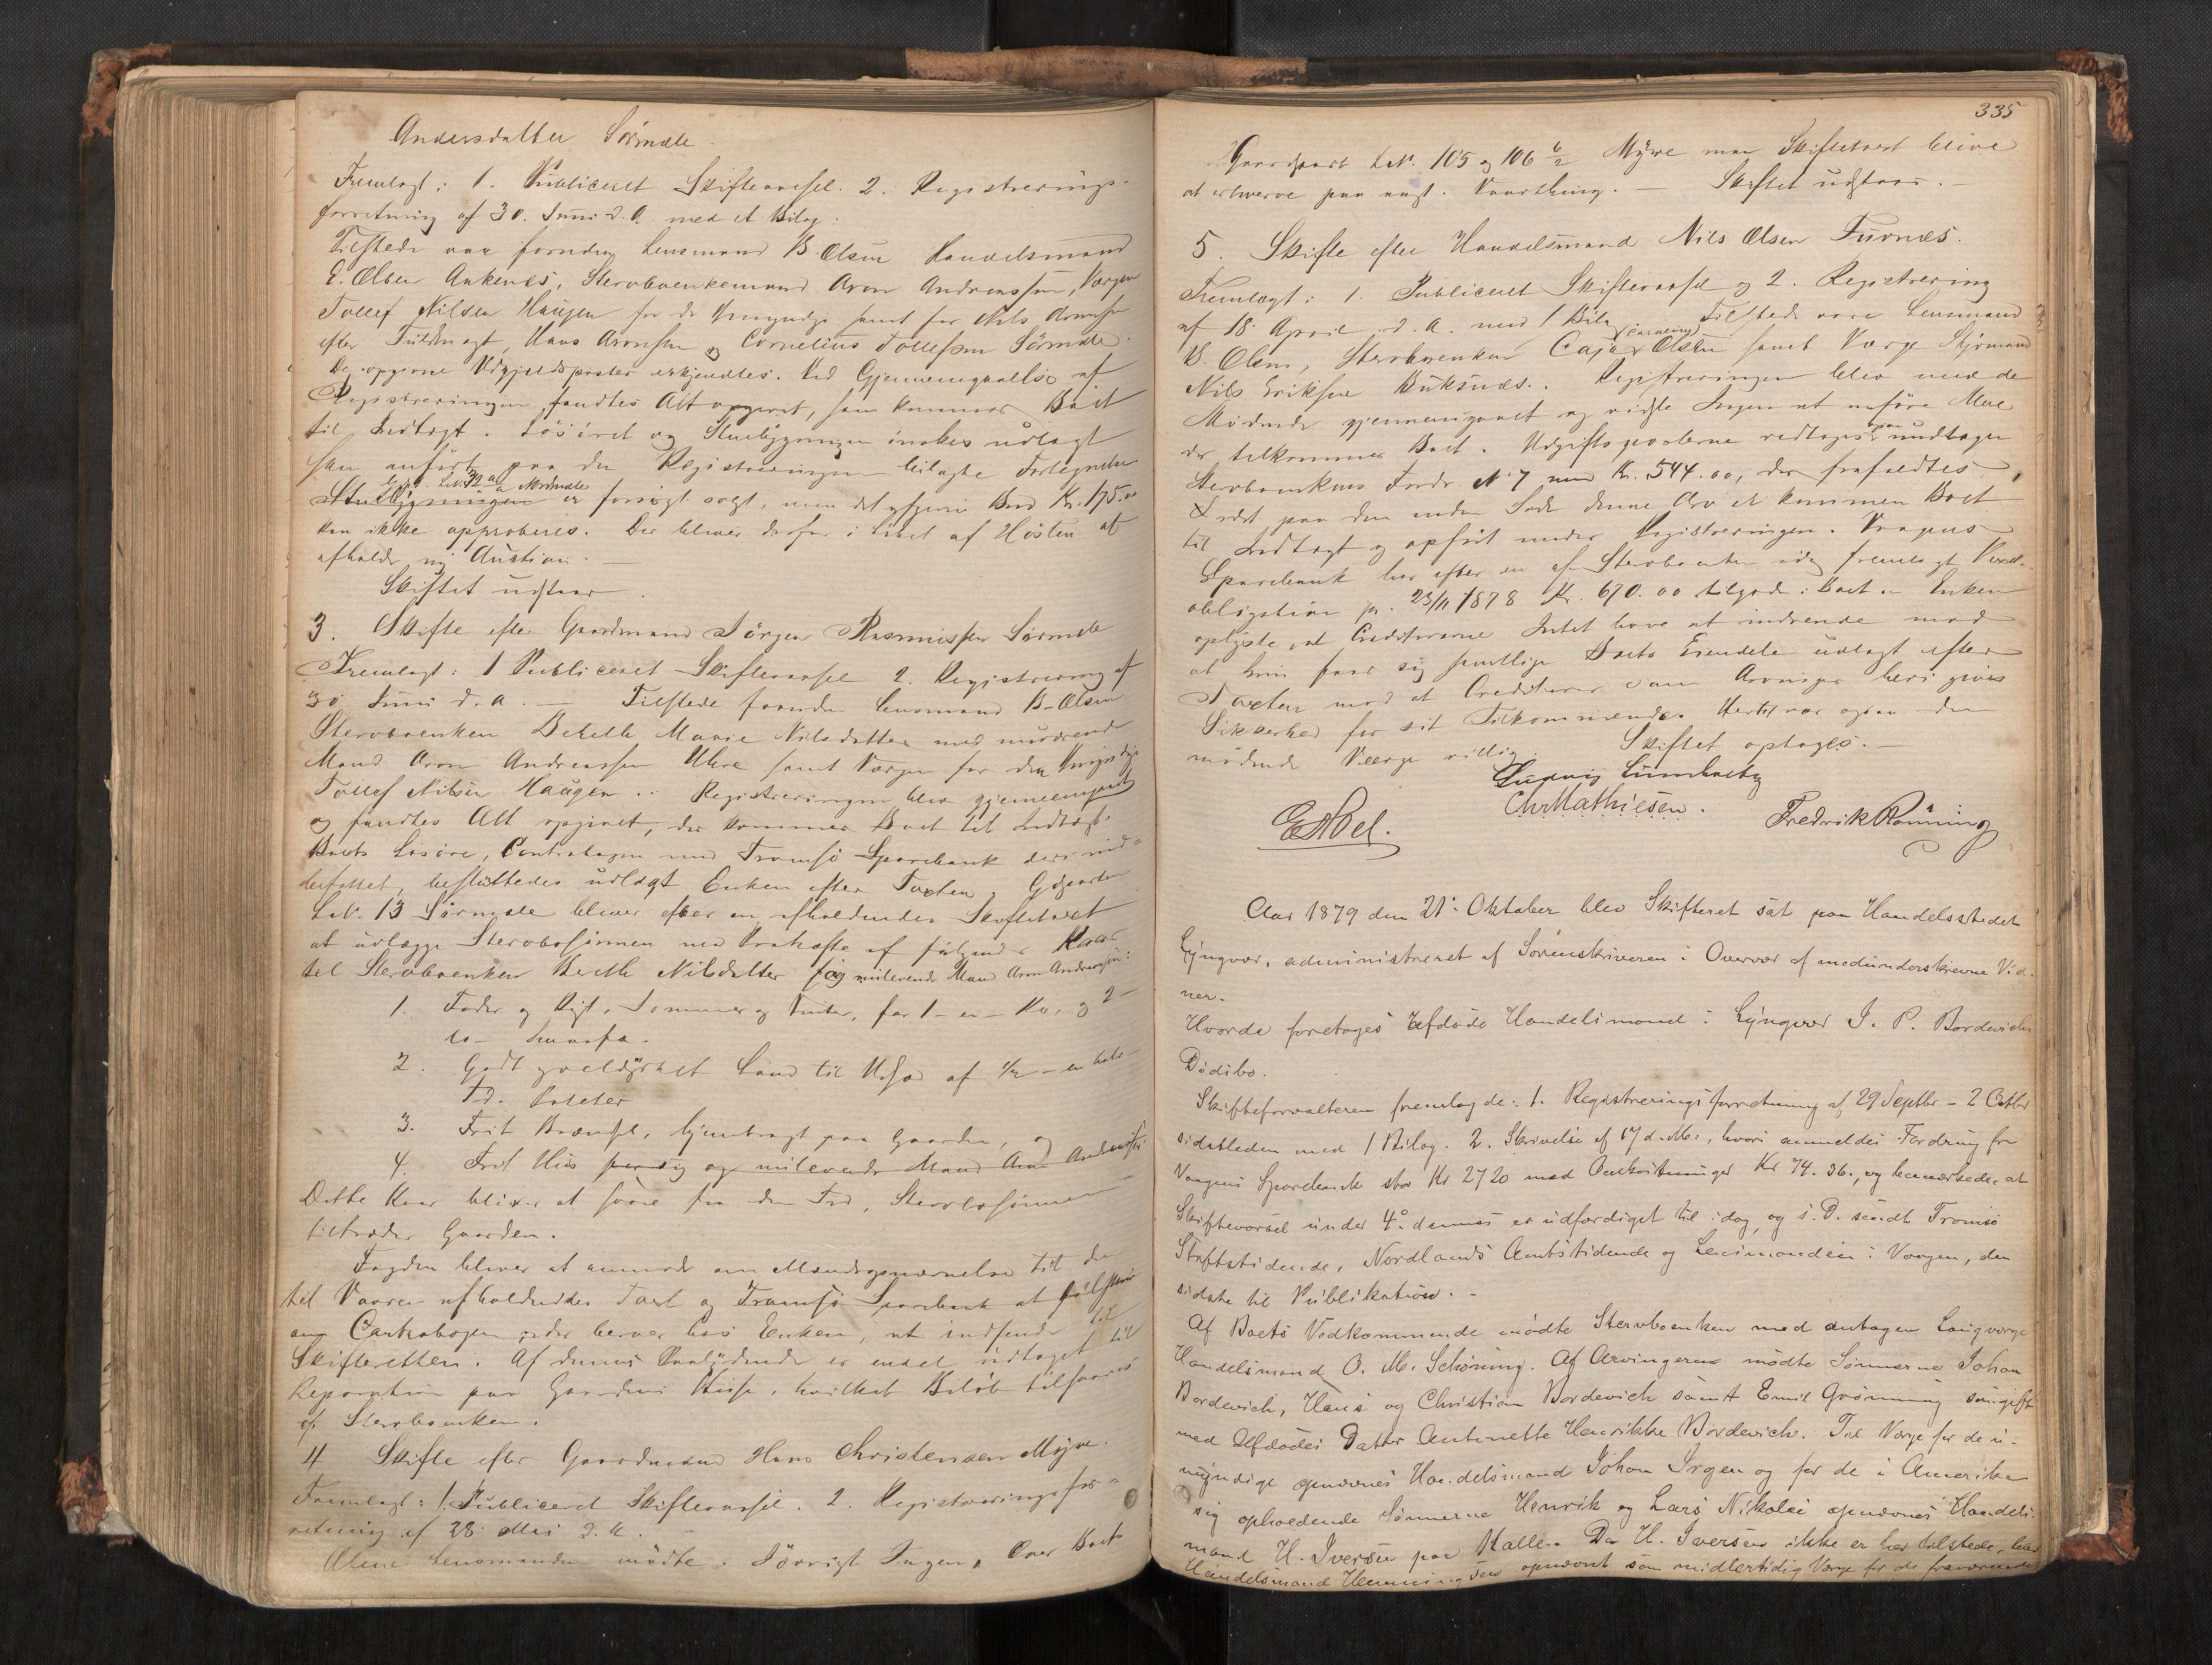 Andersdatter Sörmæle.
Fremlagt: 1. Publiceret Skiftevarsel. 2. Registrerings-
forretning af 30. Juni d. A. med et Bilag.
Tilstede var foruden Lensmand B. Olsen Handelsmand
E. Olsen Ankenes, Stervboenkemand Aron Andreassen, Værgen
Tollef Nilsen Haugen for de Umyndige samt for Nils Aronsen
efter Fuldmagt, Hans Aronsen og Cornelius Tollefsen Sörmæle.
De opgivne Udgiftsposter erkjendtes. Ved Gjennemgaaelse af
Registreringen fandtes Alt opgivet, som kommer Boet
til Indtægt. Lösöret og Stuebygningen önskes udlagt
som anfört paa den Registreringen bilagte Fortegnelse
er forsögt solgt, men det afgivne Bud Kr. 175.00
kan ikke approberes. Der bliver derfor i Löbet af Hösten at
afholde ny Auction. —
Skiftet udstaar.
3. Skifte efter Gaardmand Jörgen Rasmussen Sörmæle
Fremlagt: 1 Publiceret Skiftevarsel 2. Registrering af
30 Juni d. A. — Tilstede foruden Lensmand B. Olsen
Stervboenken Berethe Marie Nilsdatter med nuværende
Mand Aron Andreassen Uhre samt Værgen for den Umyndige
Tollef Nilsen Haugen. Registreringen blev gjennemgaaet
og fandtes Alt opgivet, der kommer Boet til Indtægt.
Boets Lösöre, Contrabogen med Tromsö Sparebank deri ind-
befattet, besluttedes udlagt Enken efter Taxten, Gdparten
L.N. 13 Sörmæle bliver efter en afholdendes Skiftetaxt
at udlægge Stervbosönnen med Vedhefte af fölgende Kaar
til Stervboenken Berethe Nilsdatter og nulevende Mand Aron Andreassen:
1. Foder og Rögt, Sommer og Vinter, for 1 - en - Ko, og 2 -
to - Smaafæ.
2. Godt gjældyrket Land til Udsæd af ½ - en halv -
Td. Poteter
3. Frit Brændsel, hjembragt paa Gaarden, og
4. Frit Hus for sig og nulevende Mand Aron Andreassen
Dette Kaar bliver at svare fra den Tid, Stervbosönnen
tiltræder Gaarden.
Fogden bliver at anmode om Mandsopnævnelse til den
til Vaaren afholdendes Taxt og Tromsö Sparebank at tilskrive
ang. Contrabogen, der beror hos Enken, at indsende til
Skifteretten. Af dennes Paalydende er endel udtaget til
Reparation paa Gaardens Huse, hvilket Belöb tilsvares
af Stervboenken.
4. Skifte efter Gaardmand Hans Christensen Myre.
Fremlagt: 1. Publiceret Skiftevarsel. 2. Registreringsfor-
retning af 28. Mai d. A.
Alene Lensmanden mödte i Jövrigt Ingen. Over Boets
335
Gaardpart L.N. 105 og 106 b/2 Myre maa Skiftetaxt blive
at erhverve paa anst. Vaarthing. — Skiftet udstaar. —
5. Skifte efter Handelsmand Nils Olsen Furnes.
Fremlagt: 1. Publiceret Skiftevarsel og 2. Registrering
af 18 April d. A. med 1 Bilag. Tilstede vare Lensmand
B. Olsen, Stervboenken Caja (Caroline) Olsen samt Værge Styrmand
Nils Eriksen Buksnæs. Registreringen blev med de
Mödende gjennemgaaet og vidste Ingen at anföre Mere
der tilkommer Boet. Udgiftsposterne vedtoges undtagen
Stervboenkens Fordr. N. 7 med Kr. 544.00, der frafaldtes
idet paa den anden Side denne Arv er kommen Boet
til Indtægt og opfört under Registreringen. Vaagens
Sparebank har efter en af Stervboenken idag fremlagt Pante-
obligation pr. 23/11 1878 Kr. 670.00 tilgode i Boet. Enken
oplyste, at Creditorerne Intet have at indvende mod
at hun faar sig samtlige Boets Eiendele udlagt efter
Taxten mod at Creditorer som Arvinger heri gives
Sikkerhed for sit Tilkommende. Hertil var ogsaa den
mödende Værge villig. Skiftet optages. —
Ludvig Lumholtz
Chr Mathiesen. Fredrik Rönning
Aar 1879 den 21. Oktober blev Skifteret sat paa Handelsstedet
Lyngvær, administreret af Sorenskriveren i Overvær af medunderskrevne Vid-
ner.
Hvorda foretoges Afdöde Handelsmand i Lyngvær J. P. Bordevichs
Dödsbo.
Skifteforvalteren fremlagde: 1. Registreringsforretning af 29 Septbr - 2 Octbr
sidstleden med 1 Bilag. 2. Skrivelse af 17 d. M., hvori anmeldes Fordring fra
Vaagens Sparebank stor Kr 2720 med Omkostninger Kr 74.36., og bemærkede, at
Skiftevarsel under 4de dennes er udfærdiget til idag, og s. D. sendt Tromsö
Stiftstidende, Nordlands Amtstidende og Lensmanden i Vaagen, den
sidste til Publikation. -
Af Boets Vedkommende mödte Stervboenken med antagen Laugværge
Handelsmand O. M. Schöning. Af Arvingerne mödte Sönnerne Johan
Bordevich, Hans og Christian Bordevich samt Emil Grönning som gift
med Afdödes Datter Antonette Henrikke Bordevich. Til Værge for de u-
myndige opnævnes Handelsmand Johan Irgen og for de i Amerika
sig opholdende Sönnerne Henrik og Lars Nikolai opnævnes Handels-
mand H. Iversen paa Kalle. Da H. Iversen ikke er her tilstede, blev
Handelsmand Henningsen opnævnt som midlertidig Værge for de fraværende